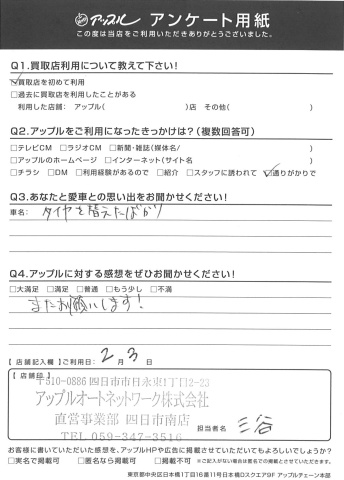 アップル アンケート用紙
この度は当店をご利用いただきありがとうございました。
Q1.買取店利用について教えて下さい!
☑買取店を初めて利用
□過去に買取店を利用したことがある
利用した店舗： アップル( )店 その他( )
Q2.アップルをご利用になったきっかけは？(複数回答可)
□テレビCM □ラジオCM □新聞・雑誌(媒体名/ )
□アップルのホームページ □インターネット(サイト名 )
□チラシ □DM □利用経験があるので □紹介 □スタッフに誘われて ☑通りがかりで
Q3.あなたと愛車との思い出をお聞かせください!
車名：
タイヤを替えたばかり
Q4.アップルに対する感想をぜひお聞かせください!
□大満足 □満足 □普通 □もう少し □不満
またお願いします!
【店舗記入欄】ご利用日： 2月 3日
【店舗印】
〒510-0886 四日市市日永東1丁目2-23
アップルオートネットワーク株式会社
直営事業部 四日市南店
TEL 059-347-3516
担当者名 三谷
お客様に書いていただいた感想を、アップルHPや広告に掲載させていただいてもよろしいでしょうか？
□実名で掲載可 □匿名なら掲載可 □掲載不可 ※ご記入がない場合は匿名での掲載とさせていただきます。
東京都中央区日本橋1丁目16番11号日本橋Dスクエア9F アップルチェーン本部